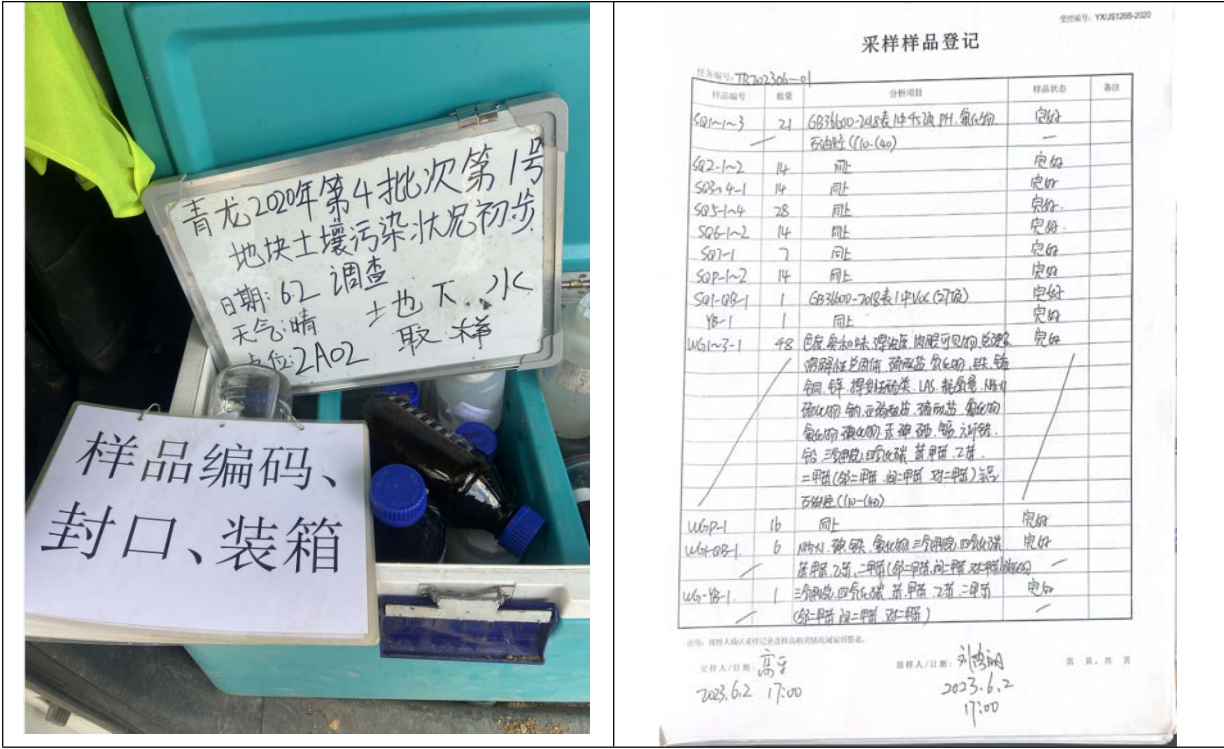 青龙2020年第4批次第1号
地块土壤污染状况初步
调查
日期:6.2
天气:晴
点位:2A02
土地下水
取样
样品编码、
封口、装箱
受控编号: YX/JS126B-2020
采样样品登记
任务编号: TR202306-01
样品编号 数量 分析项目 样品状态 备注
SQ1-1~3 21 GB36600-2018表1中45项、PH、氟化物、 完好
石油烃(C10-C40) —
SQ2-1~2 14 同上 完好
SQ3~4-1 14 同上 完好
SQ5-1~4 28 同上 完好
SQ6-1~2 14 同上 完好
SQ7-1 7 同上 完好
SQP-1~2 14 同上 完好
SQ1-QB-1 1 GB36600-2018表1中VOC(27项) 完好
YB-1 1 同上 完好
WG1~3-1 48 色度、臭和味、浑浊度、肉眼可见物、总硬度 完好
溶解性总固体、硫酸盐、氯化物、铁、锰
铜、锌、挥发酚类、LAS、耗氧量、
硫化物、钠、亚硝酸盐、硝酸盐、氰化物
氟化物、碘化物、汞、砷、硒、镉、六价铬、
铅、三氯甲烷、四氯化碳、苯、甲苯、乙苯、
二甲苯(邻二甲苯、间二甲苯、对二甲苯)
石油烃(C10-C40)
WGP-1 16 同上 完好
WG1-QB-1 6 三氯甲烷、四氯化碳 完好
苯、甲苯、乙苯、二甲苯(邻二甲苯、间二甲苯、对二甲苯)
WG-YB-1 1 三氯甲烷、四氯化碳、苯、甲苯、乙苯、二甲苯 完好
(邻二甲苯、间二甲苯、对二甲苯)
交样人/日期: 接样人/日期: 第 页, 共 页
2023.6.2 17:00 2023.6.2
17:00